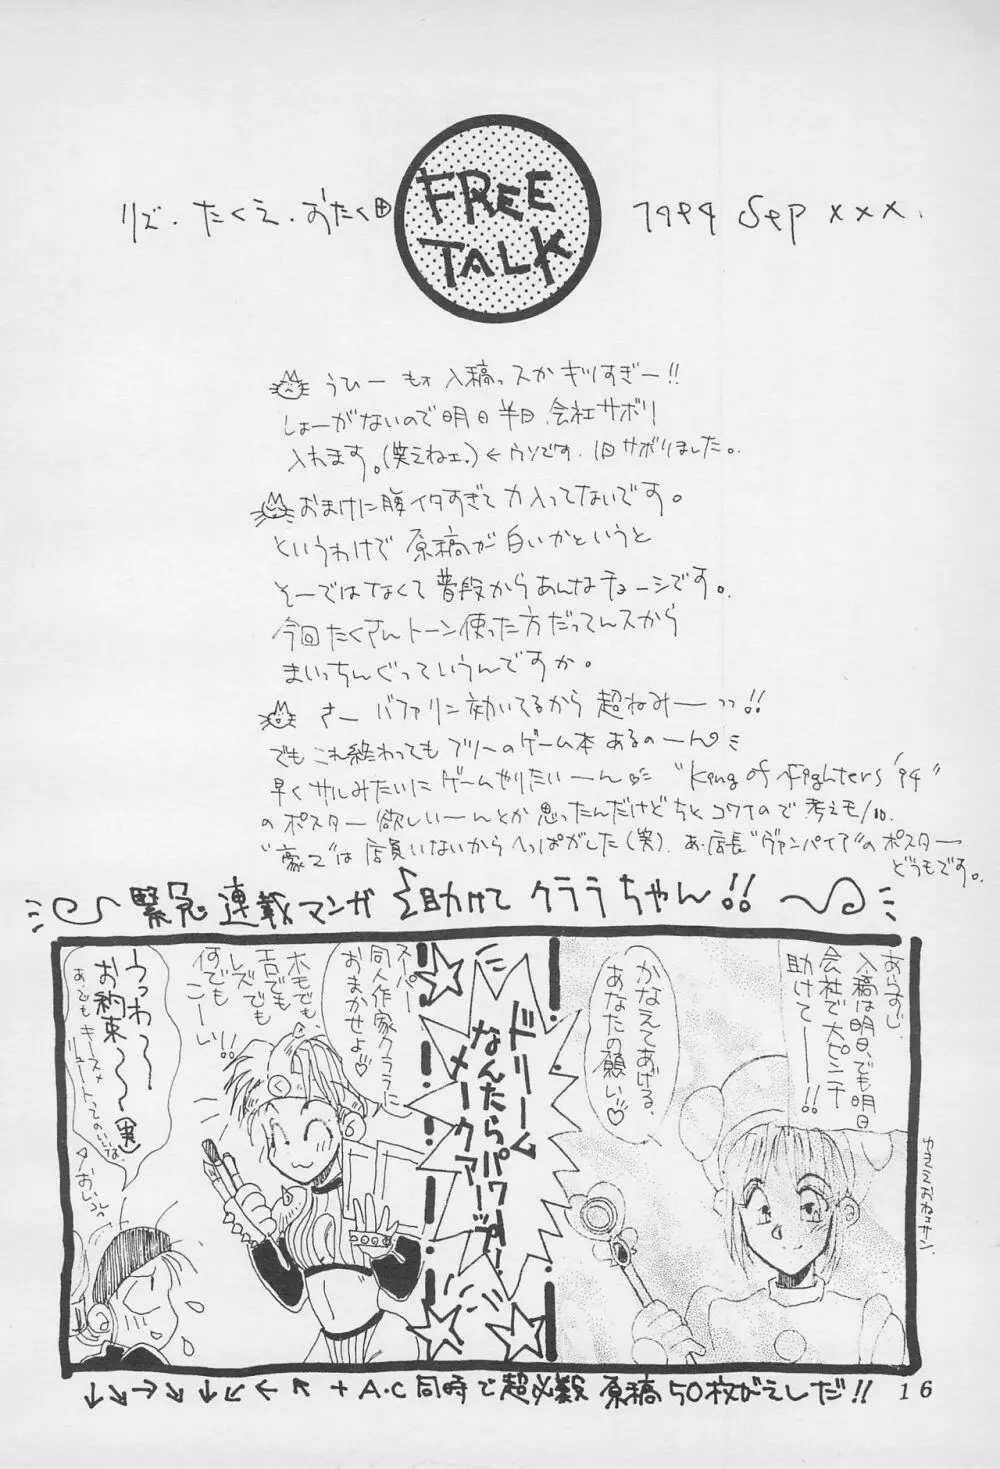 FREE
TALK
リズ・たくえ・おたく田
1994 Sep xxx.
うひー もォ 入稿っスか ギリすぎー!!
しょーがないので明日半日、会社サボリ
入れます。(笑えねェ。)←ウソです。1日サボリました。
おまけに腹イタすぎて力入ってないです。
というわけで 原稿が白いかというと
そーではなくて普段からあんなチョーシです。
今回たくさんトーン使った方だってんスから
まいっちんぐっていうんですか。
さー バファリン効いてるから 超ねみーーっっ!!
でも これ終わってもフリーのゲーム本 あるのーん
早くサルみたいにゲームやりたいーん "King of Fighters '94"
のポスター 欲しいーんとか思ったんだけどちとコワイので 考え中。
"豪工"は店員いないからへっぱがした(笑)。あ、店長"ヴァンパイア"のポスター
どうもです。
緊急連載マンガ 助けて クララちゃん!!
あらすじ
入稿は明日、でも明日
会社で大ピンチ
助けてーー!!
かなえてあげる。
あなたの願い♡
ドリーム
なんたらパワー
メークアーップ!!
スーパー
同人作家クララに
おまかせよ♡
ホモでも、
エロでも
レズでも
何でも
こーい!!
うっわ〜〜
お約束〜〜(実)
↓↘→↘↓↙←↖+A・C同時で超必殺 原稿50枚がえしだ!!
16